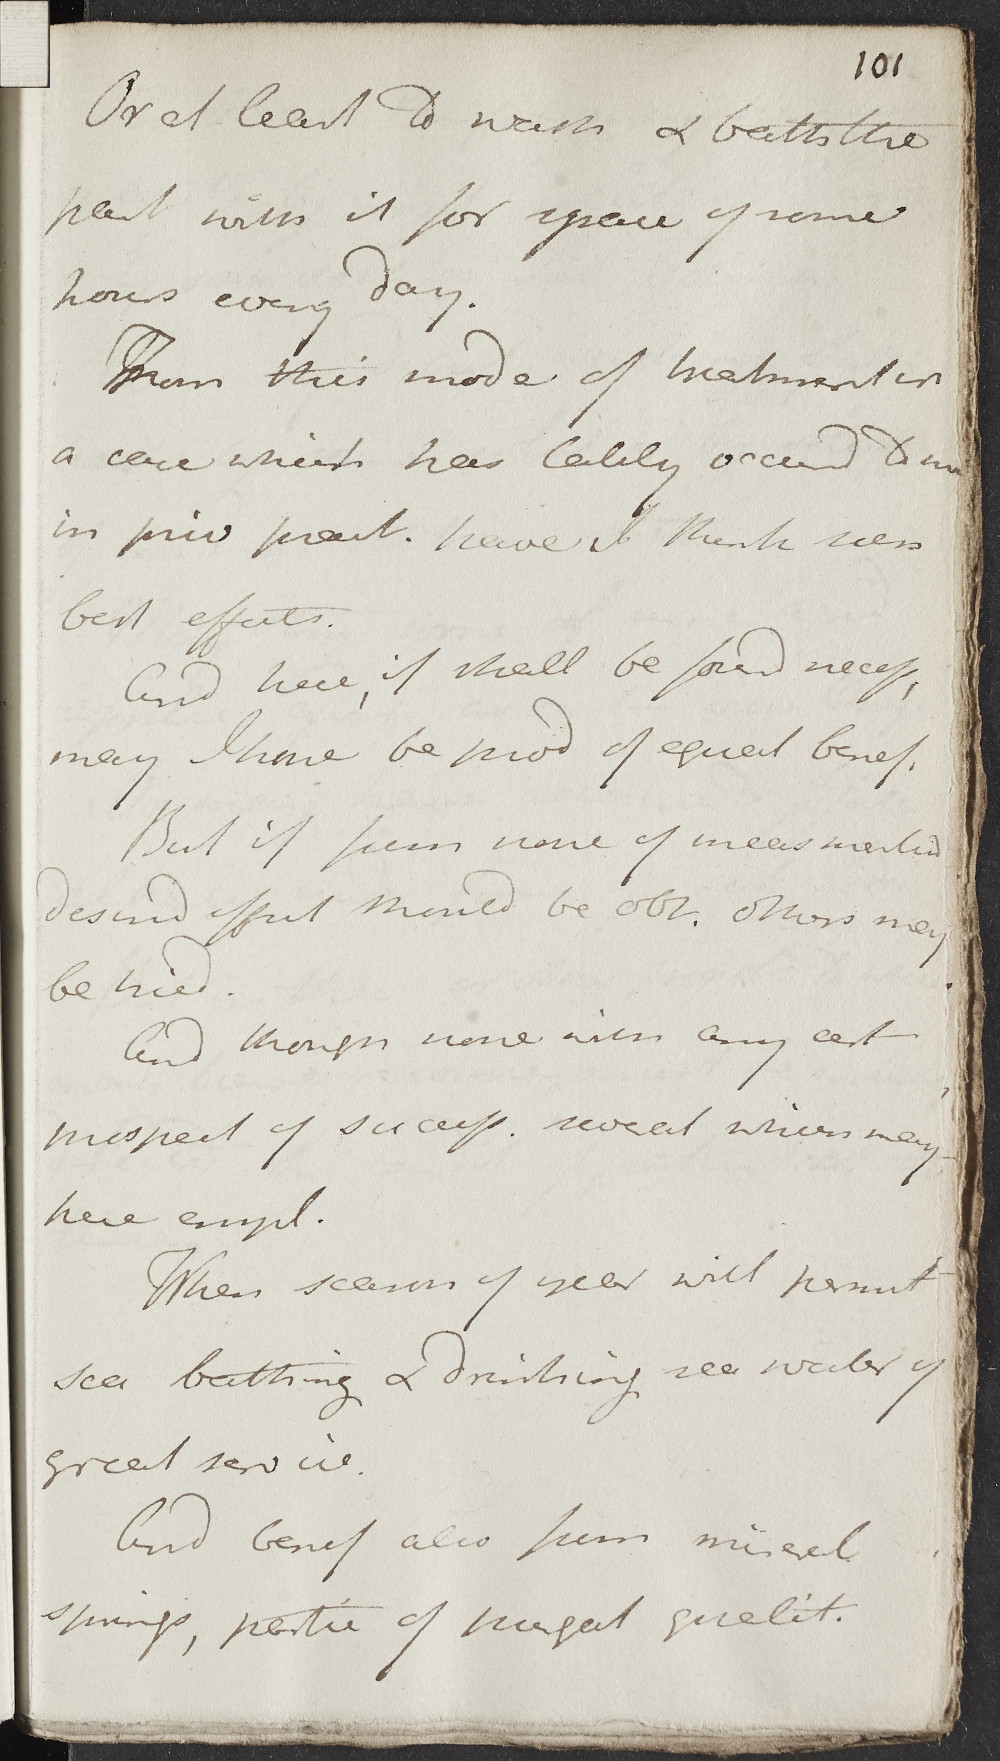 101
Or at least to wash & bathe the
part with it for space of some
hours every day.
From this mode of treatment in
a case which has lately occurd to me
in priv pract. have I think seen
best effects.
And here, if shall be found necess,
may I hope be prod of equal benef.
But if from none of meas mentiod
desired effect should be obt. others may
be tried.
And though none with any cert
prospect of success. several which may
here empl.
When season of year will permit
sea bathing & drinking sea water of
great service.
And benef also from mineral
springs, partic of purgat qualit.